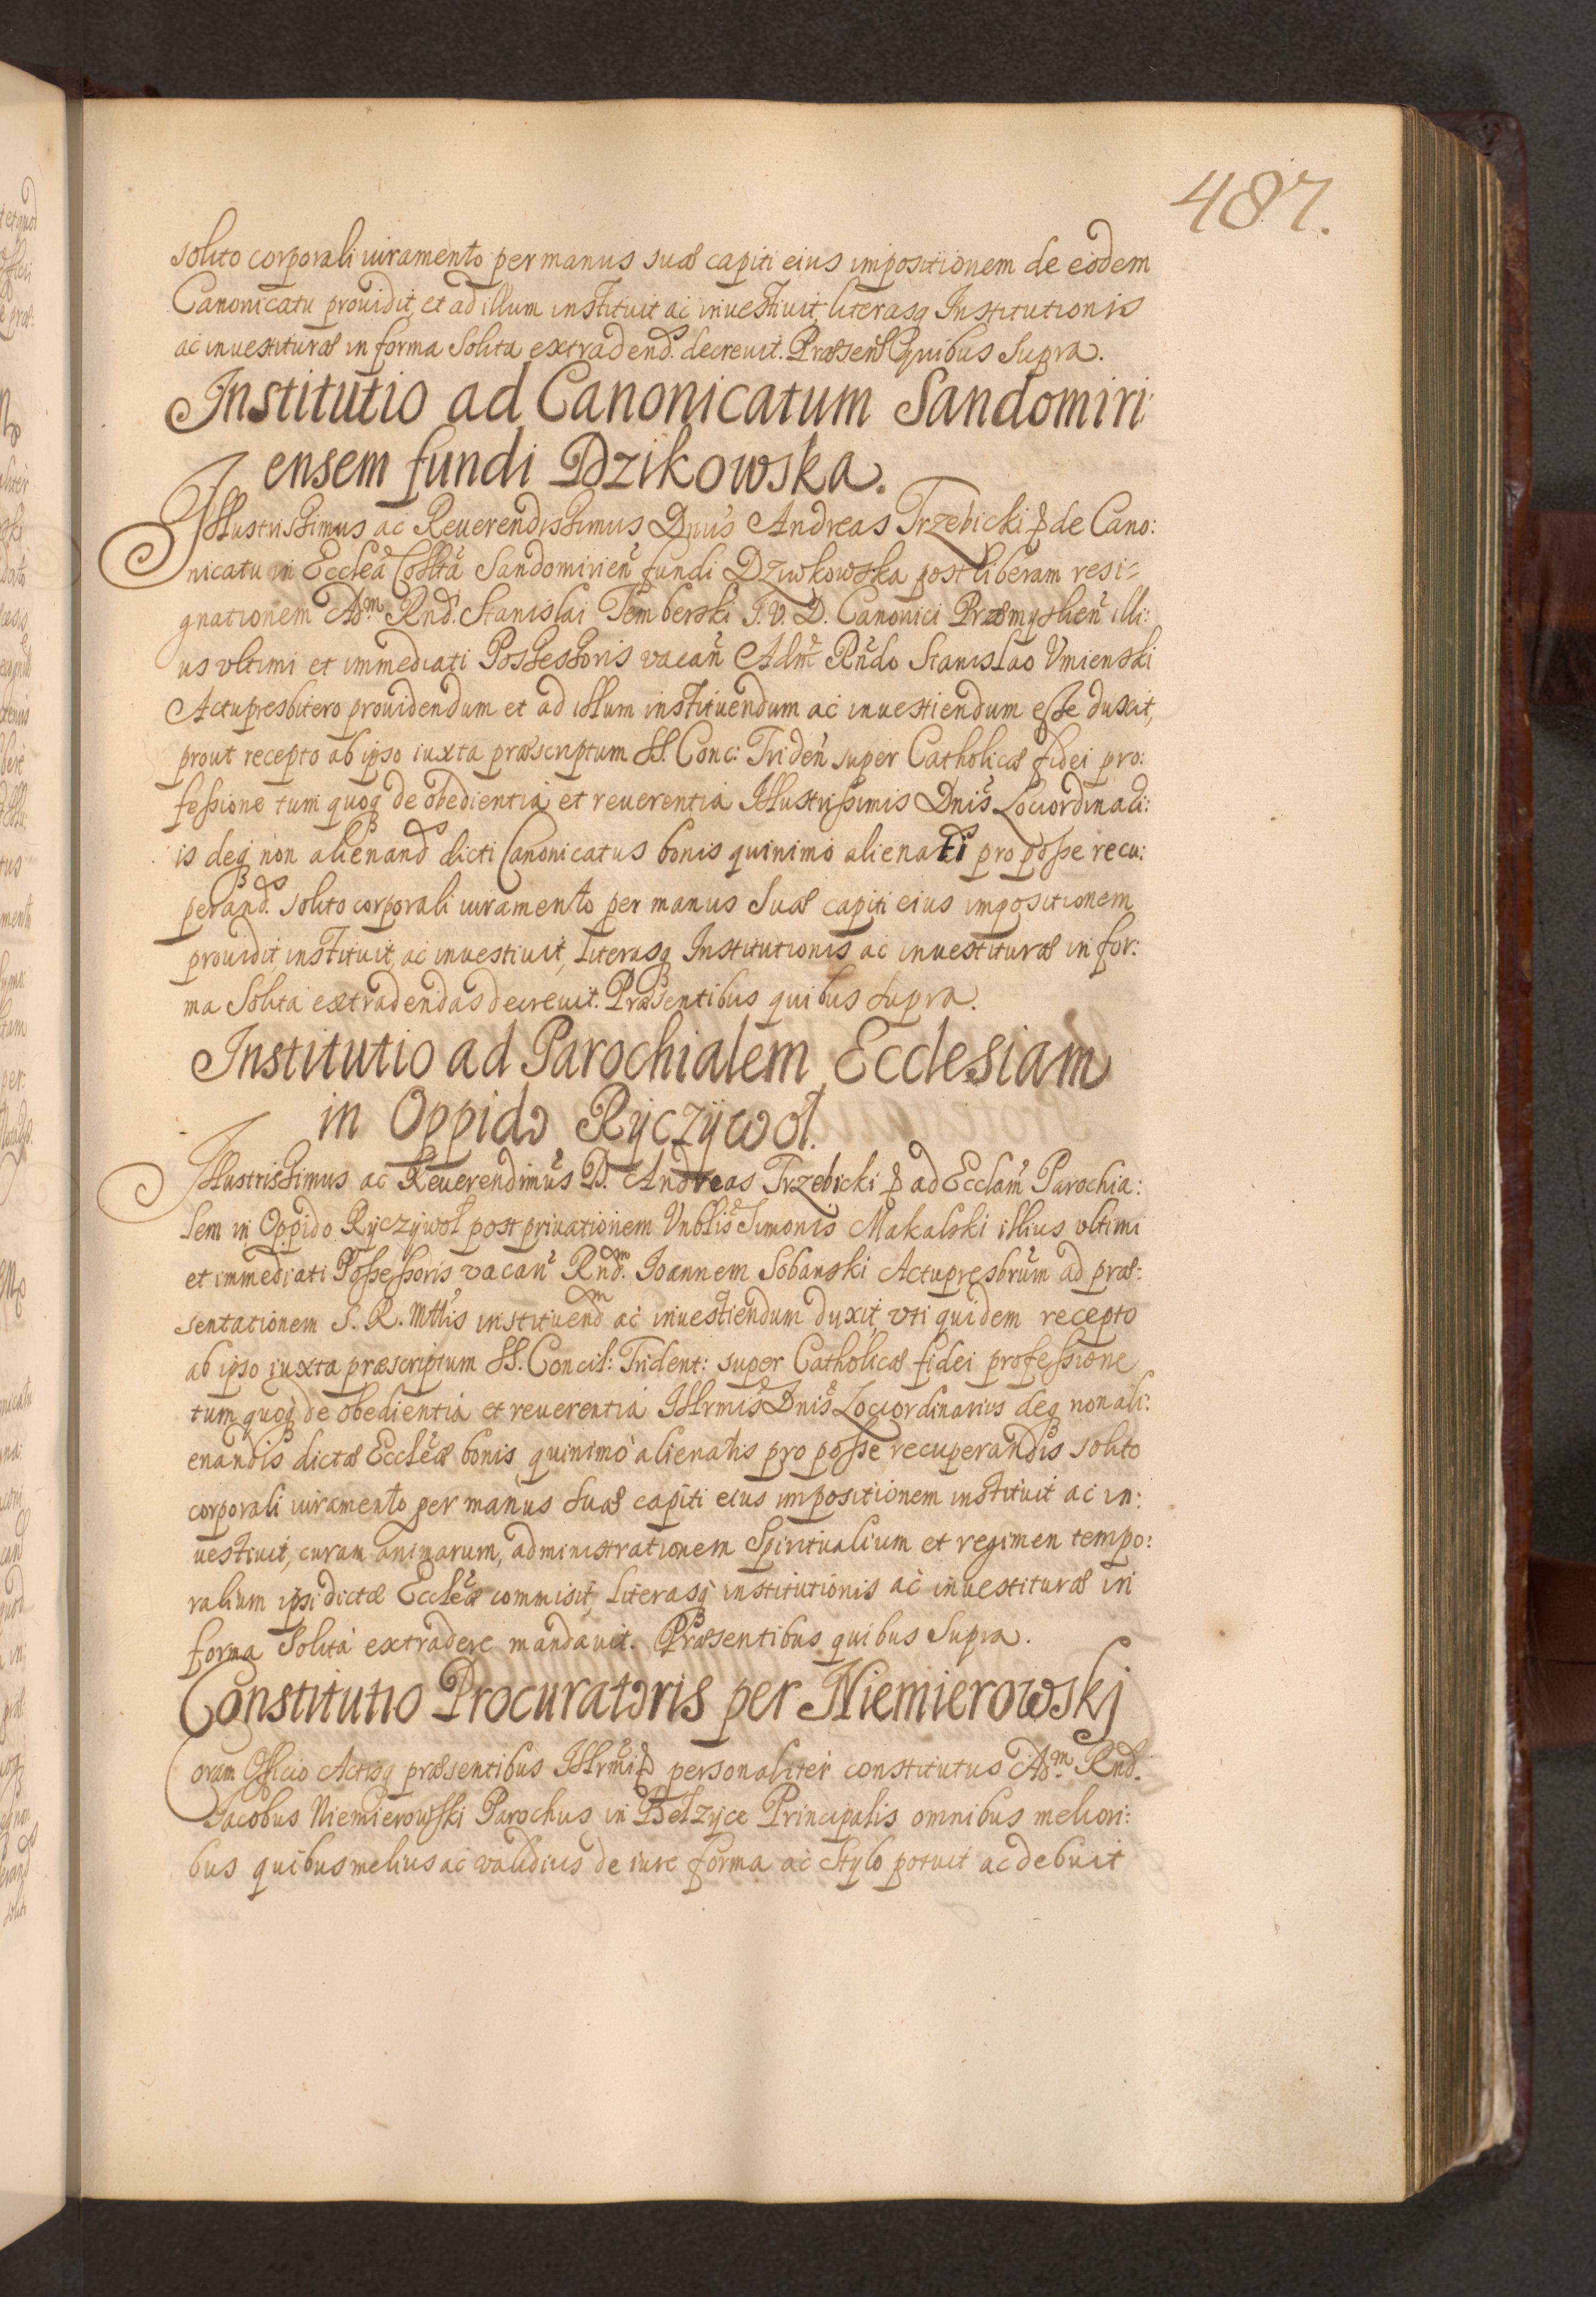 487.
solito corporali iuramento per manus suæ capiti eius impositionem de eodem
Canonicatu prouidit, et ad illum instituit ac inuestiuit, literasq Institutionis
ac inuestituræ in forma solita extradend. decreuit. Præsen quibus supra.
Institutio ad Canonicatum Sandomiri
ensem fundi Dzikowska.
Illustrissimus ac Reuerendissimus Dnus Andreas Trzebicki de Cano:
nicatu in Ecclea Collta Sandomirien fundi Dziwkowska post liberam resi=
gnationem Adm Rnd. Stanislai Temberski I. V. D. Canonici Præmyslien illi:
us vltimi et immediati Possessoris vacan Adm Rndo Stanislao Vmienski
Actupresbitero prouidendum et ad illum instituendum ac inuestiendum esse duxit,
prout recepto ab ipso iuxta præscriptum SS. Conc: Triden super Catholicæ fidei pro:
fessione tum quoq de obedientia et reuerentia Illustrissimis Dnis Lociordinari:
is deq non alienand dicti Canonicatus bonis quinimo alienati pro posse recu:
perand. solito corporali iuramento per manus suæ capiti eius impositionem
prouidit, instituit, ac inuestiuit, Literasq Institutionis ac inuestituræ in for:
ma solita extradendas decreuit. Præsentibus quibus supra.
Institutio ad Parochialem Ecclesiam
in Oppido Ryczÿwoł.
Illustrissimus ac Reuerendimus D. Andreas Trzebicki ad Ecclam Parochia:
lem in Oppido Ryczÿwoł post priuationem Vnblis Simonis Makalski illius vltimi
et immediati Possessoris vacan Rndm. Ioannem Sobanski Actupresbrum ad præ:
sentationem S. R. Mttis instituendm ac inuestiendum duxit, vti quidem recepto
ab ipso iuxta præscriptum SS. Concil: Trident: super Catholicæ fidei professione
tum quoq de obedientia et reuerentia Illrmis Dnis Lociordinarius deq non ali:
enandis dictæ Eccleæ bonis, quinimo alienatis pro posse recuperandis solito
corporali iuramento per manus suæ capiti eius impositionem instituit ac in:
uestiuit, curam animarum, administrationem Spiritualium et regimen tempo:
ralium ipsi dictæ Eccleæ commisit, Literasq institutionis ac inuestituræ in
forma solita extradere mandauit. Præsentibus quibus supra.
Constitutio Procuratoris per Niemierowskj
Coram Officio Actisq præsentibus Illrmi personaliter constitutus Adm. Rnd.
Iacobus Niemierowski Parochus in Bełzÿce Principalis omnibus meliori:
bus quibus melius ac validius de iure forma ac stylo potuit ac debuit